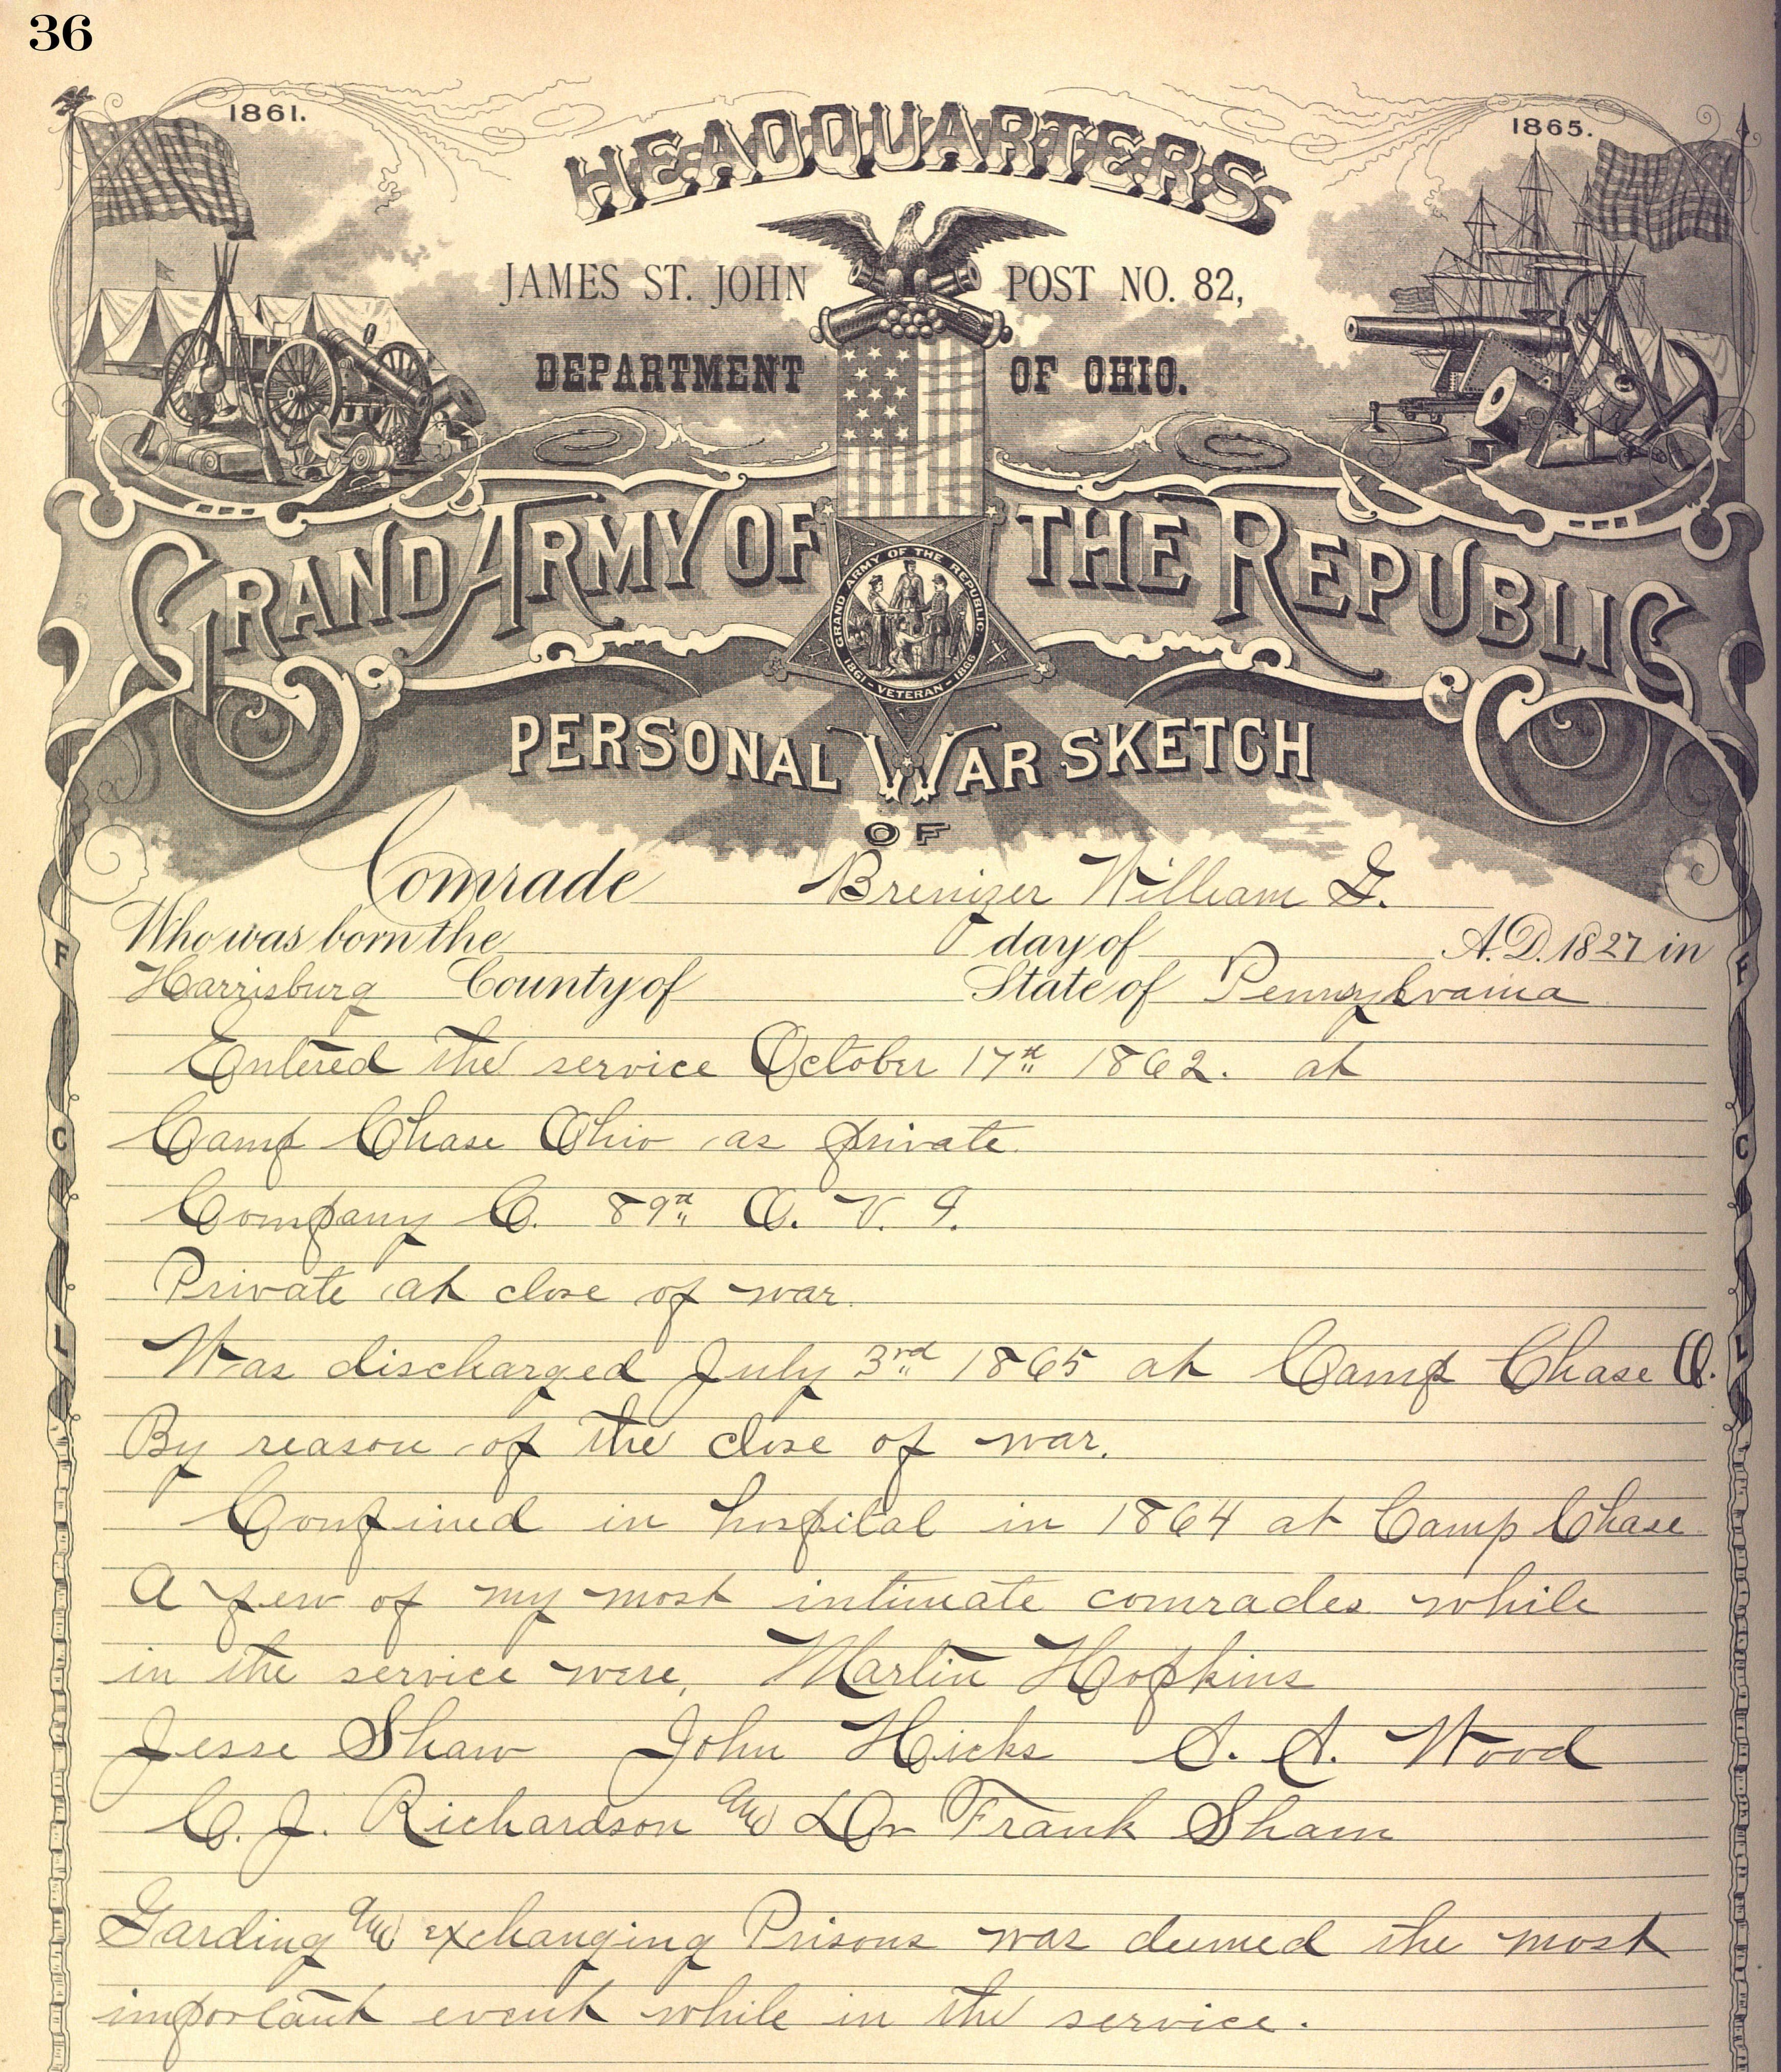 36
1861.
1865.
HEADQUARTERS
JAMES ST. JOHN POST NO. 82,
DEPARTMENT OF OHIO.
GRAND ARMY OF THE REPUBLIC
GRAND ARMY OF THE REPUBLIC
1861 - VETERAN - 1866
PERSONAL WAR SKETCH
OF
Comrade Brenizer William G.
Who was born the day of A.D. 1827 in
Harrisburg County of State of Pennsylvania
Entered the service October 17th 1862. at
Camp Chase Ohio as private.
Company C. 89th O. V. I.
Private at close of war.
Was discharged July 3rd 1865 at Camp Chase O.
By reason of the close of war.
Confined in hospital in 1864 at Camp Chase
A few of my most intimate comrades while
in the service were, Martin Hopkins
Jesse Shaw John Hicks A. A. Wood
C. J. Richardson and Dr Frank Sham
Garding and exchanging Prisons was deemed the most
important event while in the service.
F
C
L
F
C
L